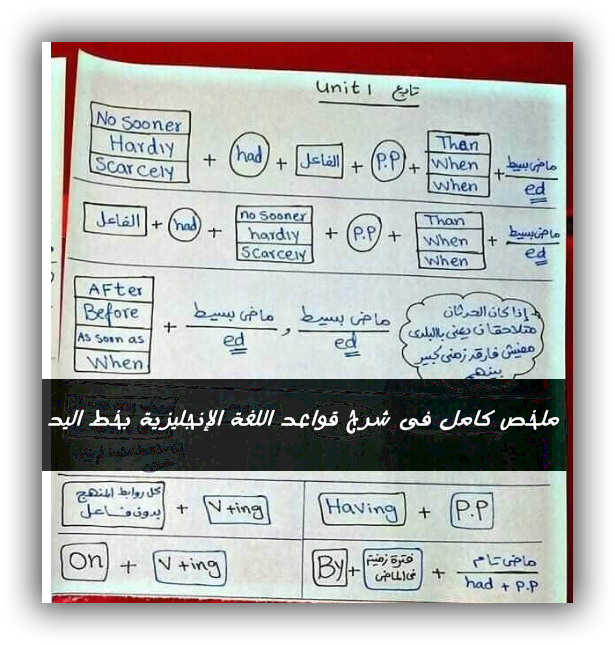 Unit 1 تابع
No sooner
Hardly
Scarcely
+ had + الفاعل + P.P +
Than
When
When
+ ماضى بسيط
ed
الفاعل + had +
no sooner
hardly
Scarcely
+ P.P +
Than
When
When
+ ماضى بسيط
ed
After
Before
As soon as
When
+ ماضى بسيط , ماضى بسيط
ed ed
إذا كان الحدثان
متلاحقان يعنى بالبلدى
مفيش فارق زمنى كبير
بينهم
ملخص كامل فى شرح قواعد اللغة الإنجليزية بخط اليد
كل روابط المنهج
بدون فاعل
+ V+ing
Having + P.P
On + V+ing
By + فترة زمنية
فى الماضى
+ ماضى تام
had + P.P